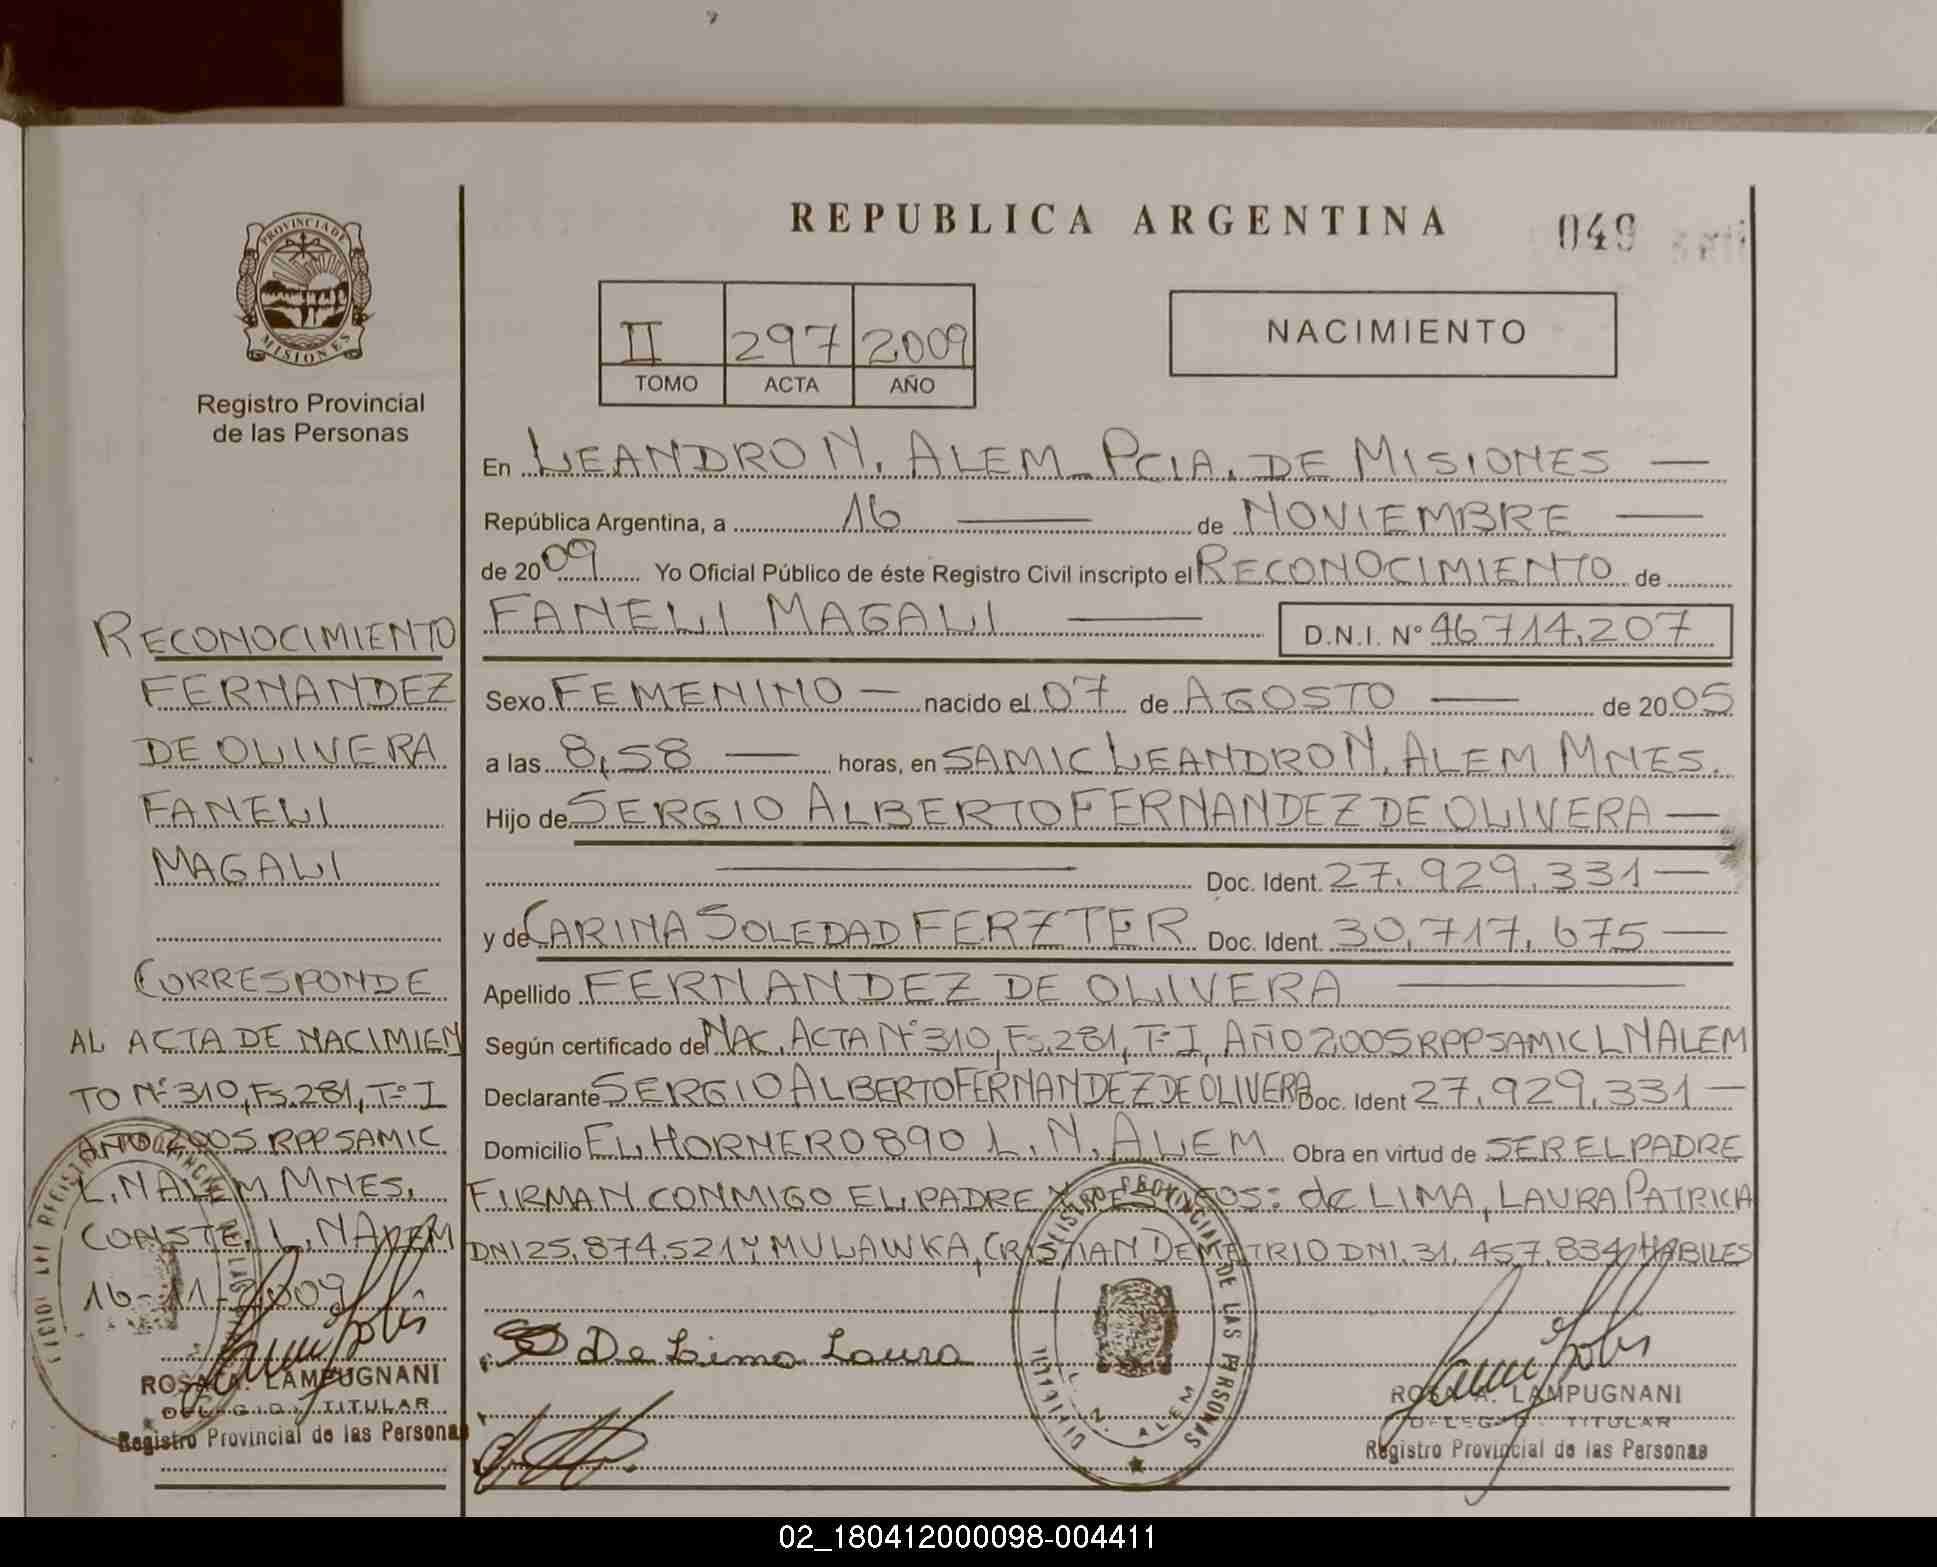 REPUBLICA ARGENTINA
049
PROVINCIA DE
MISIONES
Registro Provincial
de las Personas
II 297 2009
TOMO ACTA AÑO
NACIMIENTO
En LEANDRO N. ALEM_ PCIA. DE MISIONES —
República Argentina, a 16 — de NOVIEMBRE —
de 2009 Yo Oficial Público de éste Registro Civil inscripto el RECONOCIMIENTO de
FANELI MAGALI — D.N.I. Nº 46714.207
Sexo FEMENINO — nacido el 07 de AGOSTO — de 2005
a las 8,58 — horas, en SAMIC LEANDRO N. ALEM MNES.
Hijo de SERGIO ALBERTO FERNANDEZ DE OLIVERA —
— Doc. Ident. 27.929.331 —
y de CARINA SOLEDAD FERZTER Doc. Ident. 30.717.675 —
Apellido FERNANDEZ DE OLIVERA —
Según certificado de NAC. ACTA Nº 310, Fs. 281, Tº I, AÑO 2005 RPP SAMIC L N ALEM
Declarante SERGIO ALBERTO FERNANDEZ DE OLIVERA Doc. Ident 27.929.331 —
Domicilio EL HORNERO 890 L. N. ALEM Obra en virtud de SER EL PADRE
FIRMAN CONMIGO EL PADRE Y : de LIMA, LAURA PATRICIA
DNI 25.874.521 Y MULAWKA, CRISTIAN DEMETRIO DNI. 31.457.834 HABILES
De Lima Laura
REGISTRO PROVINCIAL DE LAS PERSONAS
L. N. ALEM
ROSA A. LAMPUGNANI
TITULAR
Registro Provincial de las Personas
RECONOCIMIENTO
FERNANDEZ
DE OLIVERA
FANELI
MAGALI
CORRESPONDE
AL ACTA DE NACIMIEN
TO Nº 310, Fs. 281, Tº I
AÑO 2005 RPP SAMIC
L. N ALEM MNES.
CONSTE. L. N ALEM
16-11-2009
ROSA A. LAMPUGNANI
TITULAR
Registro Provincial de las Personas
02_180412000098-004411